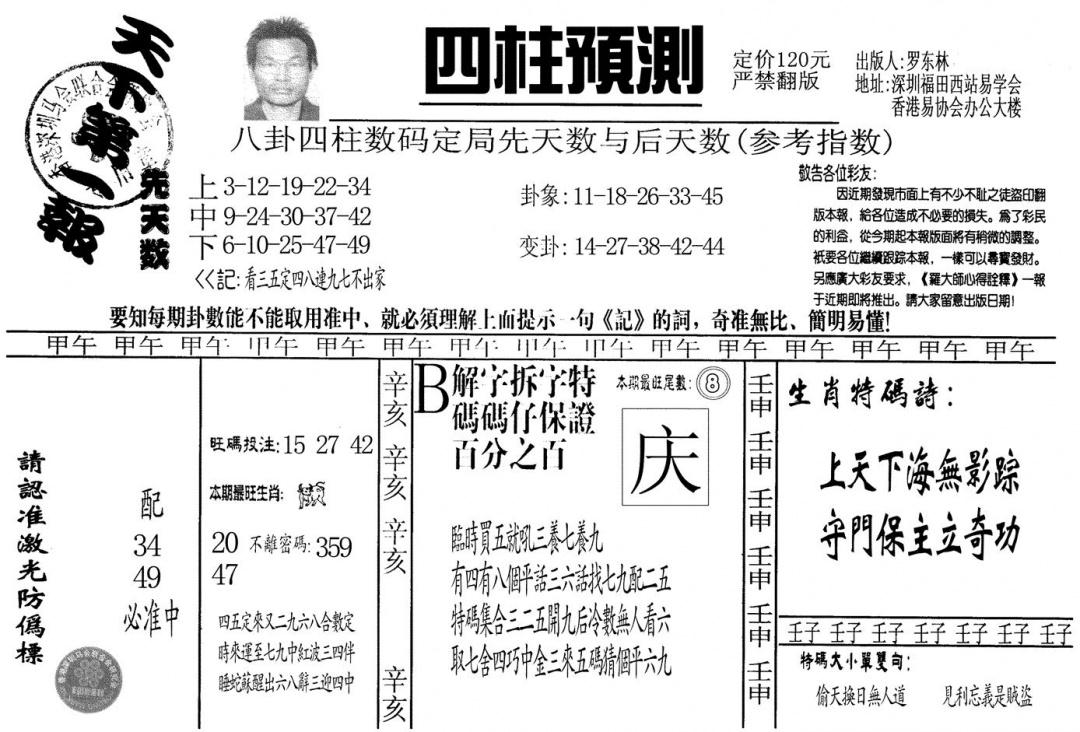 天下第一報
四柱預測
定价120元
严禁翻版
出版人:罗东林
地址:深圳福田西站易学会
香港易协会办公大楼
八卦四柱数码定局先天数与后天数(参考指数)
先天数
上 3-12-19-22-34
中 9-24-30-37-42
下 6-10-25-47-49
<<記:看三五定四八連九七不出家
卦象:11-18-26-33-45
变卦:14-27-38-42-44
敬告各位彩友:
因近期發現市面上有不少不耻之徒盗印翻
版本報,給各位造成不必要的損失。爲了彩民
的利益,從今期起本報版面將有稍微的調整。
衹要各位繼續跟踪本報,一樣可以尋寶發財。
另應廣大彩友要求,《羅大師心得詮釋》一報
于近期即將推出。請大家留意出版日期!
要知每期卦數能不能取用准中、就必須理解上面提示一句《記》的詞,奇准無比、簡明易懂!
甲午 甲午 甲午 甲午 甲午 甲午 甲午 甲午 甲午 甲午 甲午 甲午 甲午 甲午 甲午
請認准激光防僞標
配
34
49
必准中
旺碼投注:15 27 42
本期最旺生肖:
20 不離密碼:359
47
四五定來又二九六八合數定
時來運至七九中紅波三四伴
睡蛇蘇醒出六八辭三迎四中
辛亥
辛亥
辛亥
辛亥
B解字拆字特
碼碼仔保證
百分之百
本期最旺尾數:8
庆
臨時買五就吼三養七養九
有四有八個平話三六話找七九配二五
特碼集合三二五開九后冷數無人看六
取七舍四巧中金三來五碼猜個平六九
壬申
壬申
壬申
壬申
壬申
壬申
生肖特碼詩:
上天下海無影踪
守門保主立奇功
壬子 壬子 壬子 壬子 壬子 壬子 壬子
特碼大小單雙句:
偷天換日無人道 見利忘義是賊盜